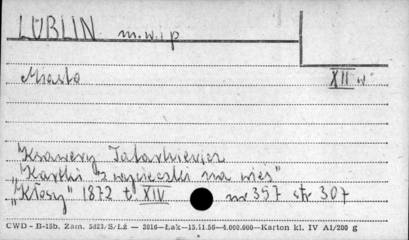 LUBLIN m. w. i p
Miasto XII w.
Ksawery Tatarkiewicz
"Kartki z wycieczki na wieś"
"Kłosy" 1872 t XIV nr 357 str 307
CWD - B-15b. Zam. 5823/S/Lż — 3016—Łak—15.11.56—4.000.000—Karton kl. IV A1/200 g